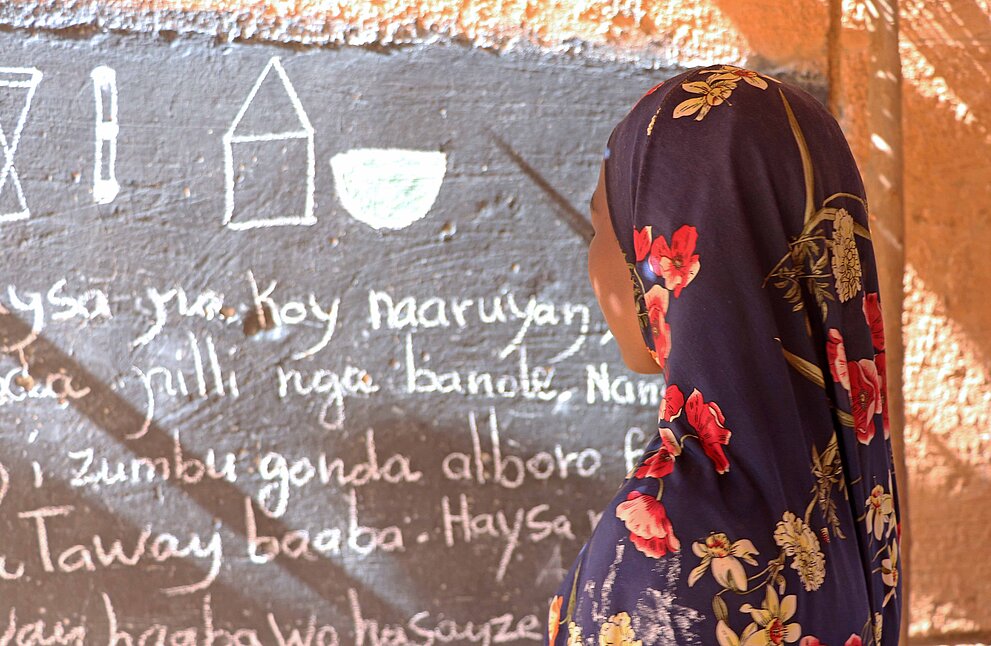 ysa yu koy naaruyan,
pilli nga bande. Nan
i zumbu gonda alboro f
Taway baaba. Haysa
baaba wo hasayze